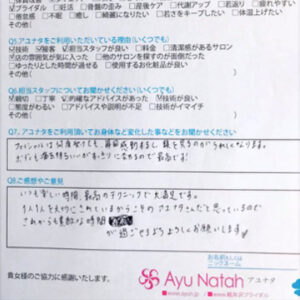 ブライダル 妊活 骨盤の歪み 産後ケア 代謝アップ 若返り 疲れやすい
倦怠感 不眠 癒し 綺麗になりたい 若さをキープしたい 体温上げたい
その他(
Q5.アユナタをご利用いただいている理由(いくつでも)
技術 接客 担当スタッフが良い 料金 清潔感があるサロン
店の雰囲気が気に入った 他のサロンを探すのが面倒だった
ゆったりとした時間が過せる 使用するお化粧品が良い
その他(
Q6.担当スタッフについてお聞かせください(いくつでも)
親切 丁寧 的確なアドバイスがあった 技術が良い
態度が悪い アドバイス不足 説明不足 技術がイマイチ
その他(
Q7.アユナタをご利用頂いてお身体など変化した事などをお聞かせください
フェイシャルは何度受けても、毎回感動ものし、鏡を見るのがうれしくなります。
Q8.ご感想やご意見
いつも楽しい時間、最高のテクニックで大満足です。
1人1人を大切にされているからこそのアユナタさんだと思っているので
これからも素敵な時間
が過ごせるようよろしくお願いします
お名前もしくは
ニックネーム
貴女様のご協力に感謝いたします。
Ayu Natah アユナタ